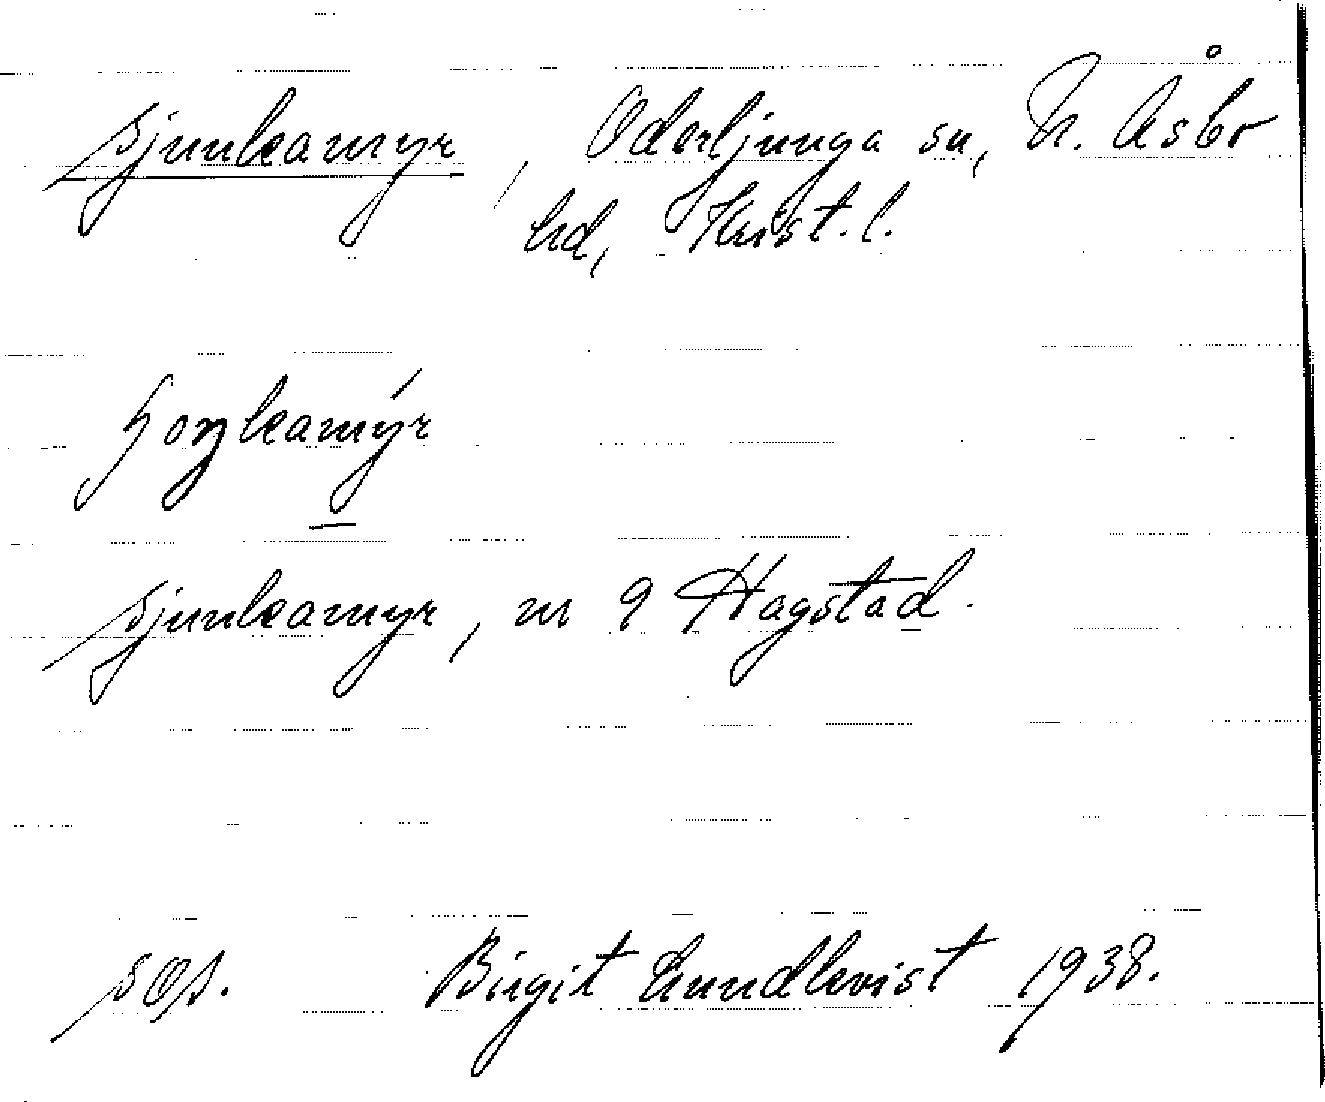 sjunkamyr, Oderljunga sn, N. Åsbo
hd, Krist. l.
ɧoŋkamýr
sjunkamyr, nr 9 Hagstad.
søs. Birgit Lundkvist 1938.